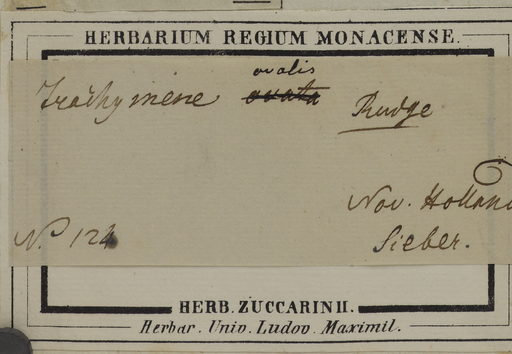 HERBARIUM REGIUM MONACENSE.
ovalis
Trachymene ovata Rudge
Nov. Holland
No. 124 Sieber.
HERB. ZUCCARINII.
Herbar. Univ. Ludov. Maximil.